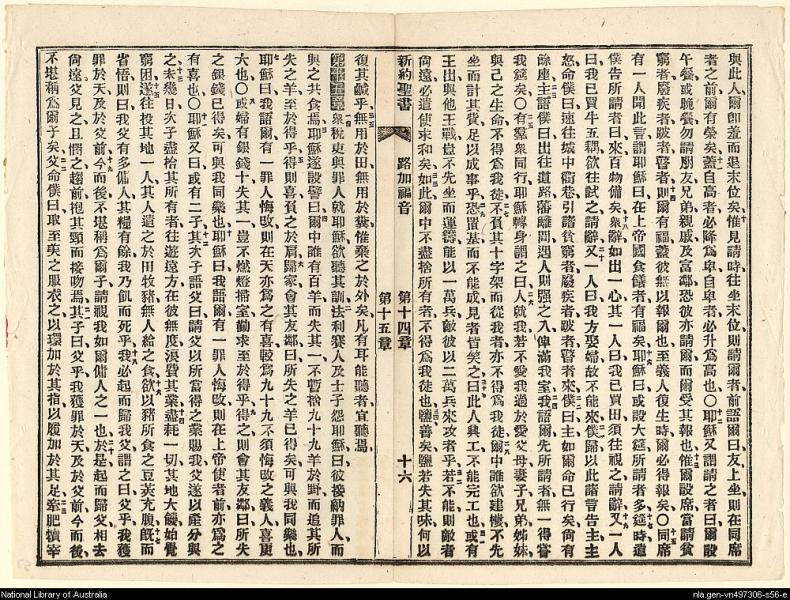 與此人爾即羞而退末位矣惟見請時往坐末位則請爾者前語爾曰友上坐則在同席
者之前爾有榮矣蓋自高者必降爲卑自卑者必升爲高也○耶穌又謂請之者曰爾設
午餐或晚餐勿請朋友兄弟親戚及富鄰恐彼亦請爾而爾受其報也惟爾設席當請貧
窮者廢疾者跛者瞽者則爾有福蓋彼無以報爾也至義人復生時爾必得報矣○同席
有一人聞此言謂耶穌曰在上帝國食餅者有福矣耶穌曰或設大筵所請者多筵時遣
僕告所請者曰來百物備矣衆辭如出一心其一人曰我已買田須往視之請辭又一人
曰我已買牛五耦欲往試之請辭又一人曰我方娶婦故不能來僕歸以此諸言告主主
怒命僕曰速往城中衢巷引諸貧窮者廢疾者跛者瞽者來僕曰主如爾命已行矣尙有
餘座主語僕曰出往道路藩籬間遇人則强之入俾滿我室我語爾先所請者無一得嘗
我筵矣○有羣衆同行耶穌轉身謂之曰人就我若不愛我過於愛父母妻子兄弟姊妹
與己之生命不得爲我徒不負其十字架而從我者亦不得爲我徒爾中誰欲建樓不先
坐而計其貲足以成事乎恐置基而不能成見者皆笑之曰此人興工不能完工也或有
王出與他王戰豈不先坐而運籌能以一萬兵敵彼以二萬兵來攻者乎若不能則敵者
尙遠必遣使求和矣如此爾中不盡捨所有者不得爲我徒也鹽善矣鹽若失其味何以
新約聖書 路加福音 第十四章 第十五章 十六
復其鹹乎無用於田無用於糞惟棄之於外矣凡有耳能聽者宜聽焉
衆稅吏與罪人就耶穌欲聽其訓法利賽人及士子怨耶穌曰彼接納罪人而
與之共食焉耶穌遂設譬曰爾中誰有百羊而失其一不暫捨九十九羊於野而追其所
失之羊至於得乎得則喜負之於肩歸家會其友鄰曰所失之羊已得矣可與我同樂也
耶穌曰我語爾有一罪人悔改則在天亦爲之有喜較爲九十九不須悔改之義人喜更
大也○或婦有銀錢十失其一豈不燃燈掃室勤求至於得乎得之則會其友鄰曰所失
之銀錢已得矣可與我同樂也耶穌曰我語爾有一罪人悔改則在上帝使者前亦爲之
有喜也○耶穌又曰或有二子其次子語父曰請父以所當得之業賜我父遂以產分與
之未幾日次子盡拾其所有者往遊遠方在彼無度浪費其業盡耗一切其地大饑始覺
窮困遂往投其地一人其人遣之於田牧豬無人給之食欲以豬所食之豆莢充腹旣而
省悟則曰我父有多傭人其糧有餘我乃飢而死乎我必起而歸我父謂之曰父乎我獲
罪於天及於父前今而後不堪稱爲爾子請視我如爾傭人之一也於是起而歸父相去
尙遠父見之且憫之趨前抱其頸而接吻焉其子曰父乎我獲罪於天及於父前今而後
不堪稱爲爾子矣父命僕曰取至美之服衣之以環加於其指以履加於其足牽肥犢宰
National Library of Australia
nla.gen-vn497306-s56-e